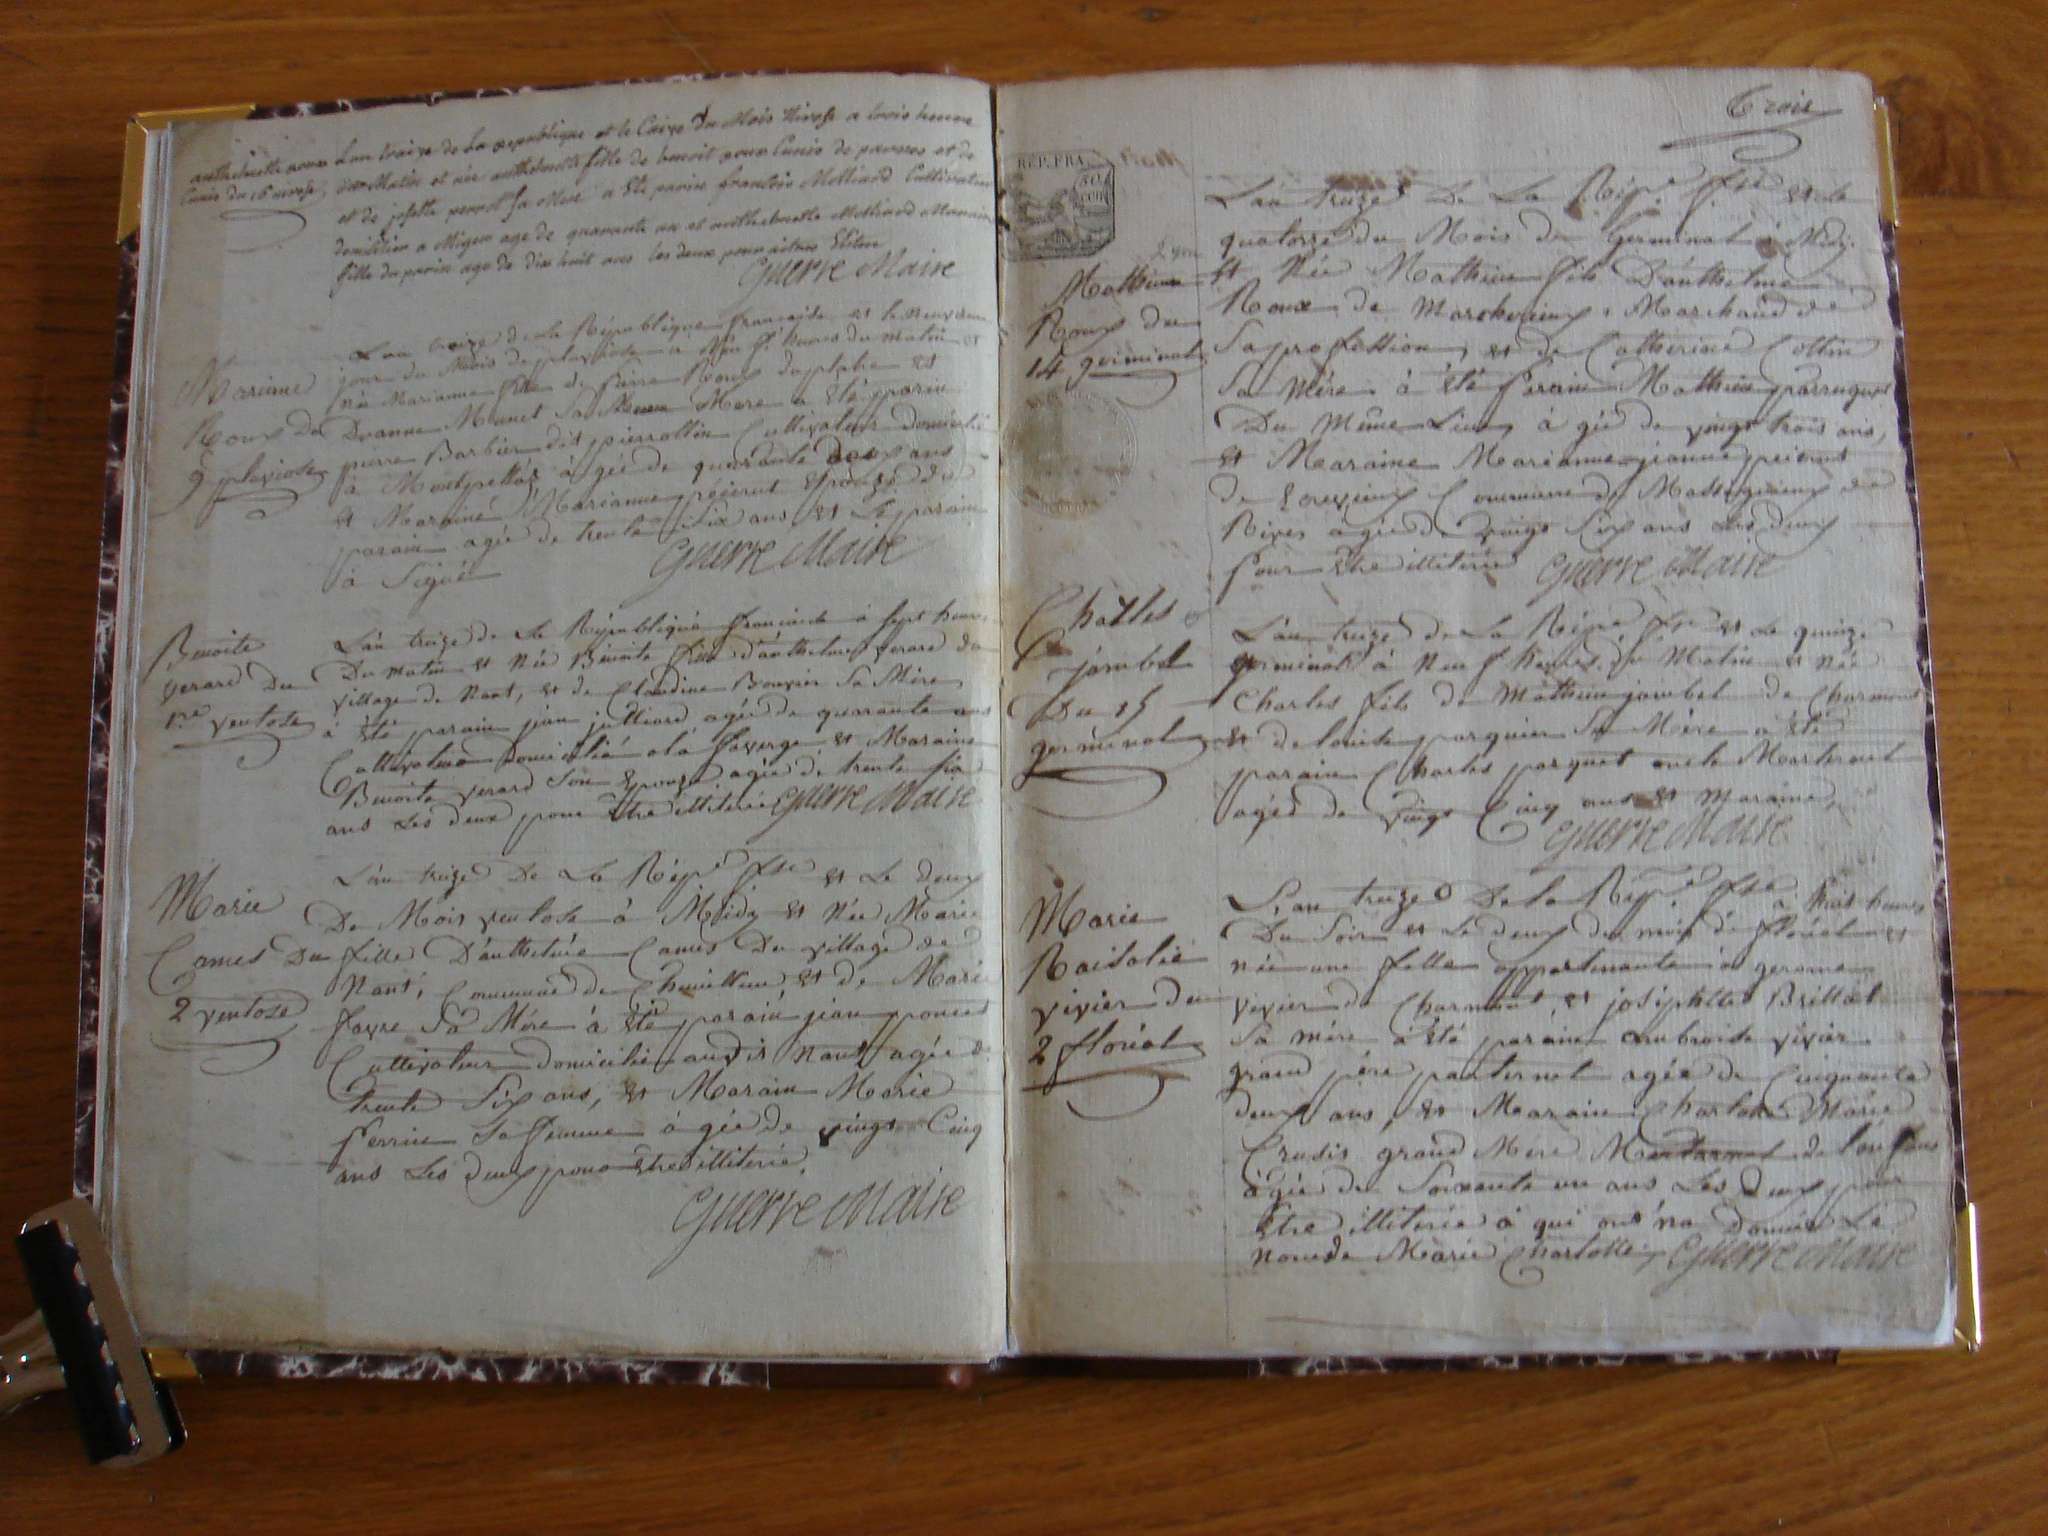 anthelmette roux
L'an traize de la republique et le Caize du Mois Nivose a trois heures
du Matin et née anthelmette fille de benoit roux Cunis de parves et de
Cunis du 16 nivose
et de josette perrot sa Mere a Eté parin francois Molliard Cultivateur
domicilier a Migeu age de quarante un et anthelmette Molliard Maraine
fille du parin age de dix huit ans les deux pour aitre Eliteu
Guerre Maire
Marianne
Roux du
9 pluviose
L'an treize de La République francaise et le neuvieme
jour du Mois de pluviose à Neuf heures du matin et
née Marianne fille de pierre Roux du et
Mere a Eté parin
pierre Barbier dit pierrottin Cultivateur domicilié
à agée de quarante deux ans
et Maraine Marianne Epouze du
parain agée de trente Six ans et Le parain
à Signé
Guerre Maire
Benoite
verard du
1re ventose
L'an treize de La République francaise à sept heures
Du matin et Née Bénoite fille d'anthelme verard du
village de Nant, et de Claudine Bouvier Sa Mére
à Eté parain jean julliard agée de quarante ans
Cultivateur domicilié a la faverge et Maraine
Benoite verard Son Epouze agée de trente six
ans Les deux pour Etre illiteré Guerre Maire
Marie
Camet Du
2 ventose
L'an treize De La Répe fse et Le deux
De Mois ventose à Midy et Née Marie
fille D'anthelme Camet Du village de
Nant, Commune de et de Marie
favre Sa Mére à Eté parain jean poncet
Cultivateur domicilié audit Nant agée de
trente Six ans, et Marain Marie
perrin Sa femme agée de vingt Cinq
ans Les deux pour Etre illiteré,
Guerre Maire
Trois
REP. FRA
50
CEN
Mathieu
Roux du
14 germinal
L'an treize De La Répe fse et le
quatorze du Mois de Germinal à Midy
et Née Mathieu fils D'anthelme
Roux de Marchand de
Sa profession, et de Catherine Collin
Sa Mére à Eté parain Mathieu
Du Même Lieu, agée de vingt trois ans,
et Maraine Marianne
de Commune de Massignieux de
Rives agée de vingt Six ans Les deux
pour Etre illiteré Guerre Maire
Charles
jambel
Du 15
germinal
L'an treize de La Répe fse et Le quinze
germinal à Neuf heures du Matin et Née
Charles fils de Mathieu jambel de Charmont
et de Louise Sa Mére a Eté
parain Charles oncle Maternel
agéd de vingt Cinq ans et Maraine,
Guerre Maire
Marie
vivier du
2 floréal
L'an treize De la Répe fse à huit heures
Du Soir et Le deux du mois de floréal et
née une fille appartenante à gerome
vivier de Charmont, et josephtte Brillat
Sa mére à Eté parain ambroise vivier
grand pére paternel agée de Cinquante
deux ans, et Marain Charlotte Marie
Crusis grand Mére Maternel de l'enfant
agée de Soixante un ans Les deux pour
Etre illiteré à qui ont na Donnée Le
nom de Marie Charlotte, Guerre Maire